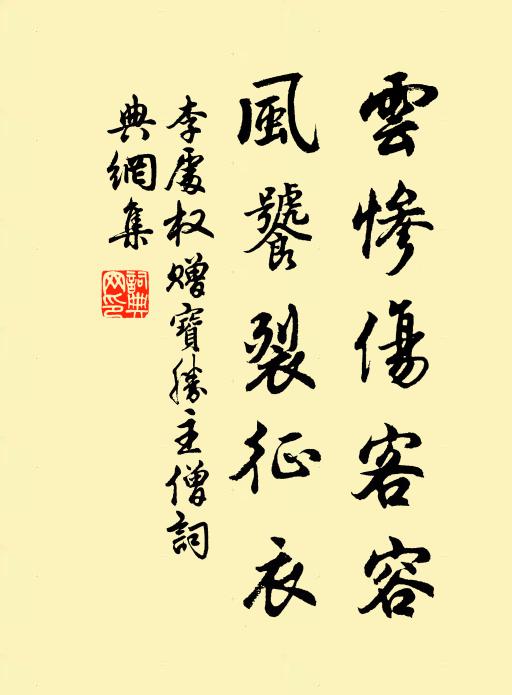 雲慘傷客容
風饕裂征衣
李處权赠寶勝主僧詞
典網集
詞典网印